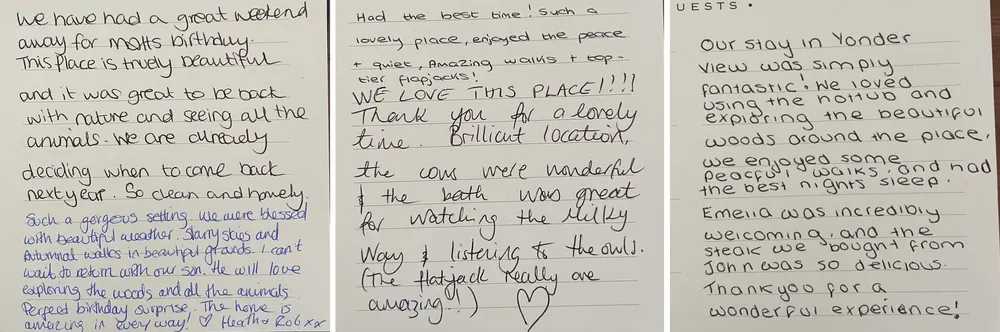 We have had a great weekend
away for Matts birthday.
This Place is truely beautiful
and it was great to be back
with nature and seeing all the
animals. We are already
deciding when to come back
next year. So clean and homely.
Such a gorgeous setting. We were blessed
with beautiful weather. Starry skies and
Autumnal walks in beautiful grounds. I can't
wait to return with our son. He will love
exploring the woods and all the animals
Perfect birthday surprise. The home is
amazing in every way! ♡ Heath & Rob xx
Had the best time! Such a
lovely place, enjoyed the peace
+ quiet, Amazing walks + top-
tier flapjacks!
WE LOVE THIS PLACE!!!!
Thank you for a lovely
time. Brillicut location,
the cows were wonderful
& the bath was great
for watching the Milky
Way & listening to the owls.
(The flatjack really are
amazing!!) ♡
UESTS •
Our stay in Yonder
view was simply
fantastic! We loved
using the hottub and
exploring the beautiful
woods around the place,
we enjoyed some
peacful walks, and had
the best nights sleep.
Emelia was incredibly
welcoming, and the
steak we bought from
John was so delicious.
Thankyou for a
wonderful experience!